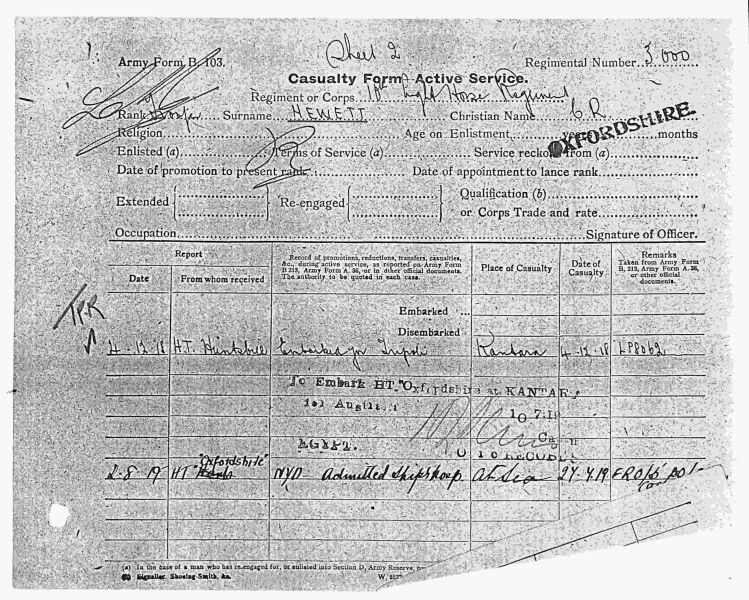 Sheet 2
Army Form B. 103.
Regimental Number 3,000
Casualty Form—Active Service.
Regiment or Corps 10th Light Horse Regiment
Rank Trooper Surname HEWETT Christian Name C R
OXFORDSHIRE.
Religion Age on Enlistment years months
Enlisted (a) Terms of Service (a) Service reckons from (a)
Date of promotion to present rank Date of appointment to lance rank
Extended Re-engaged Qualification (b)
or Corps Trade and rate
Occupation Signature of Officer.
Report
Date
From whom received
Record of promotions, reductions, transfers, casualties, &c., during active service, as reported on Army Form B. 213, Army Form A. 36, or in other official documents. The authority to be quoted in each case.
Place of Casualty
Date of Casualty
Remarks
Taken from Army Form B. 213, Army Form A. 36, or other official documents.
Embarked ...
Disembarked
TPR
4-12-18 H.T. Huntsbill Embarked for Tripoli Kantara 4-12-18 LP8062
To Embark HT. "Oxfordshire at KANTAR
for Australia
10 7 19
EGYPT.
O i/c RECORDS
2-8-19 HT "Oxfordshire" NYD Admitted Ships hosp. At Sea 27-7-19
(a) In the case of a man who has re-engaged for, or enlisted into Section D, Army Reserve,
(b) Signaller, Shoeing-Smith, &c. W. 557